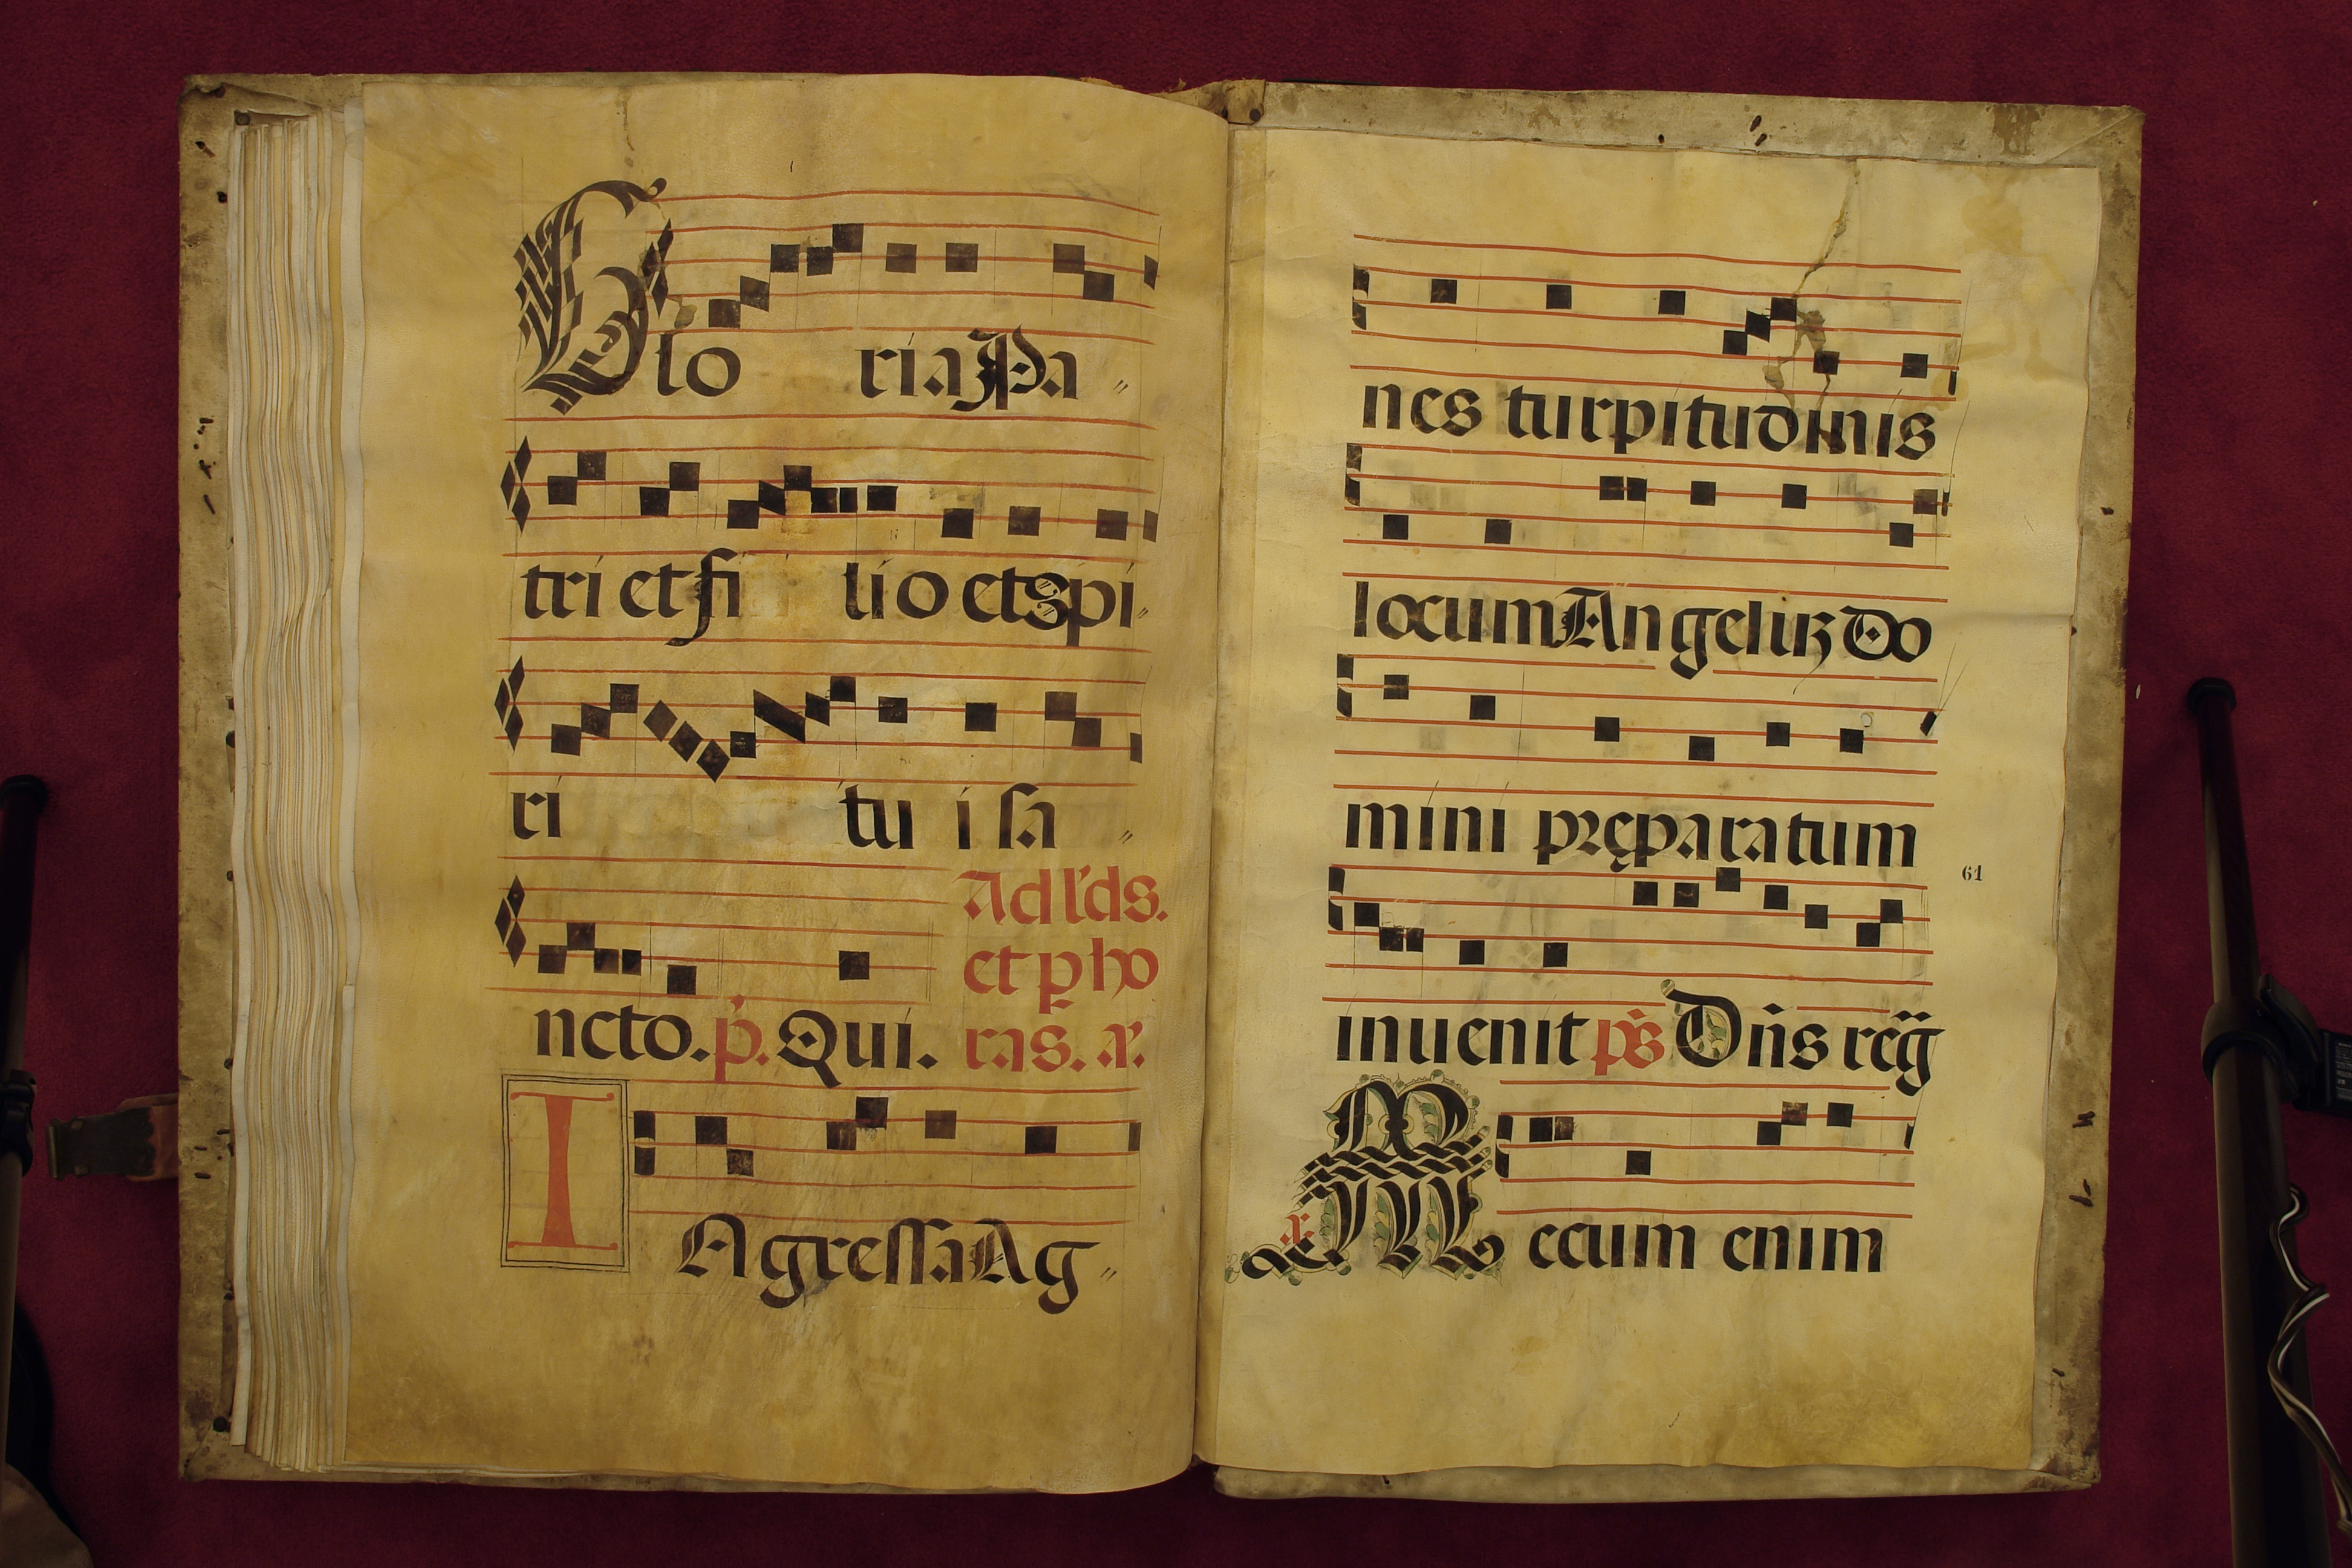 Glo riaPa
tri et fi lio et Spi
ri tu i sa
Ad l'ds.
et p ho
ras. a.
ncto. p. Qui.
I AgressaAg
nes turpitudinis
locum Angelus Do
mini pręparatum
61
inuenit ps Dñs reg
a Mecum enim